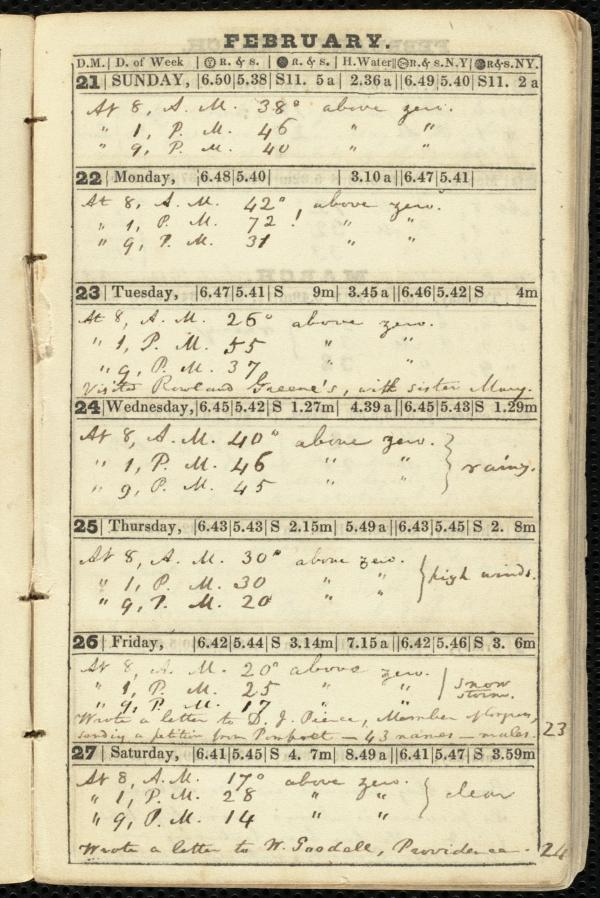 FEBRUARY.
D.M. | D. of Week | R. & s. | R. & s. | H.Water || R.&s.N.Y | R&s.NY.
21 | SUNDAY, | 6.50 | 5.38 | S11. 5 a | 2.36 a || 6.49 | 5.40 | S11. 2 a
At 8, A. M. 38° above zero.
" 1, P. M. 46 " "
" 9, P. M. 40 " "
22 | Monday, | 6.48 | 5.40 | | 3.10 a || 6.47 | 5.41 |
At 8, A. M. 42°, above zero.
" 1, P. M. 72! " "
" 9, P. M. 31 " "
23 | Tuesday, | 6.47 | 5.41 | S 9m | 3.45 a || 6.46 | 5.42 | S 4m
At 8, A. M. 26° above zero.
" 1, P. M. 55 " "
" 9, P. M. 37 " "
Visited Rowland Greene's, with sister Mary.
24 | Wednesday, | 6.45 | 5.42 | S 1.27m | 4.39 a || 6.45 | 5.43 | S 1.29m
At 8, A. M. 40° above zero.
" 1, P. M. 46 " " } rainy.
" 9, P. M. 45 " "
25 | Thursday, | 6.43 | 5.43 | S 2.15m | 5.49 a || 6.43 | 5.45 | S 2. 8m
At 8, A. M. 30° above zero.
" 1, P. M. 30 " " } high winds.
" 9, P. M. 20 " "
26 | Friday, | 6.42 | 5.44 | S 3.14m | 7.15 a || 6.42 | 5.46 | S 3. 6m
At 8, A. M. 20° above zero.
" 1, P. M. 25 " " } snow storm.
" 9, P. M. 17 " "
Wrote a letter to D. J. Pearce, Member of Congress, 23
sending a petition from Pomfret — 43 names — males.
27 | Saturday, | 6.41 | 5.45 | S 4. 7m | 8.49 a || 6.41 | 5.47 | S 3.59m
At 8, A. M. 17° above zero.
" 1, P. M. 28 " " } clear
" 9, P. M. 14 " "
Wrote a letter to W. Goodell, Providence. 24